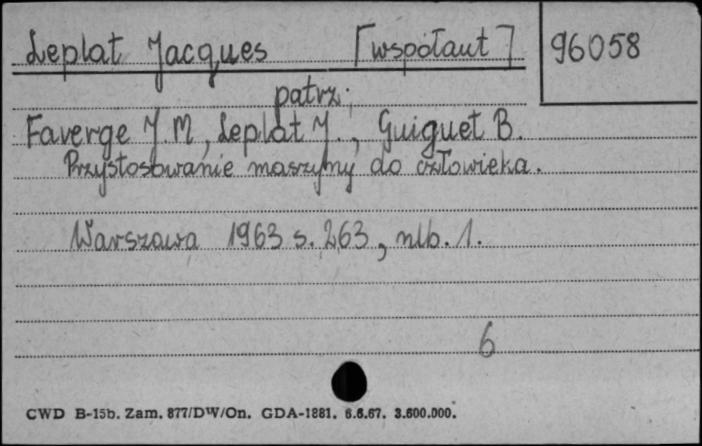 Leplat Jacques [współaut]
96058
patrz:
Faverge J.M, Leplat J., Guiguet B.
Przystosowanie maszyny do człowieka.
Warszawa 1963 s. 263, nlb. 1.
6
CWD B-15b. Zam. 877/DW/On. GDA-1881. 6.6.67. 3.600.000.